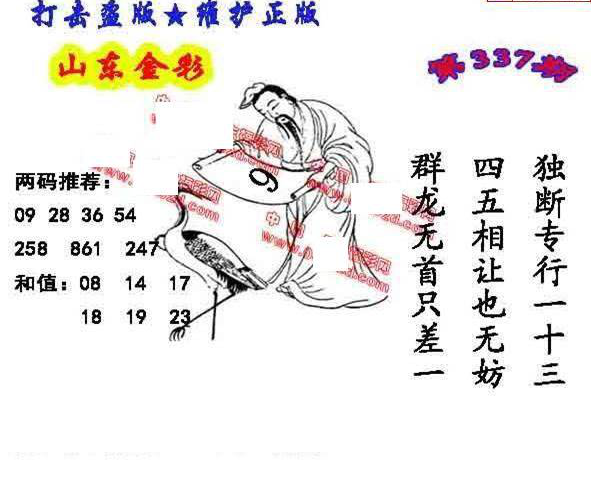 打击盗版★维护正版
山东金彩
第337期
独断专行一十三
四五相让也无妨
群龙无首只差一
两码推荐：
09 28 36 54
258 861 247
和值：08 14 17
18 19 23
9